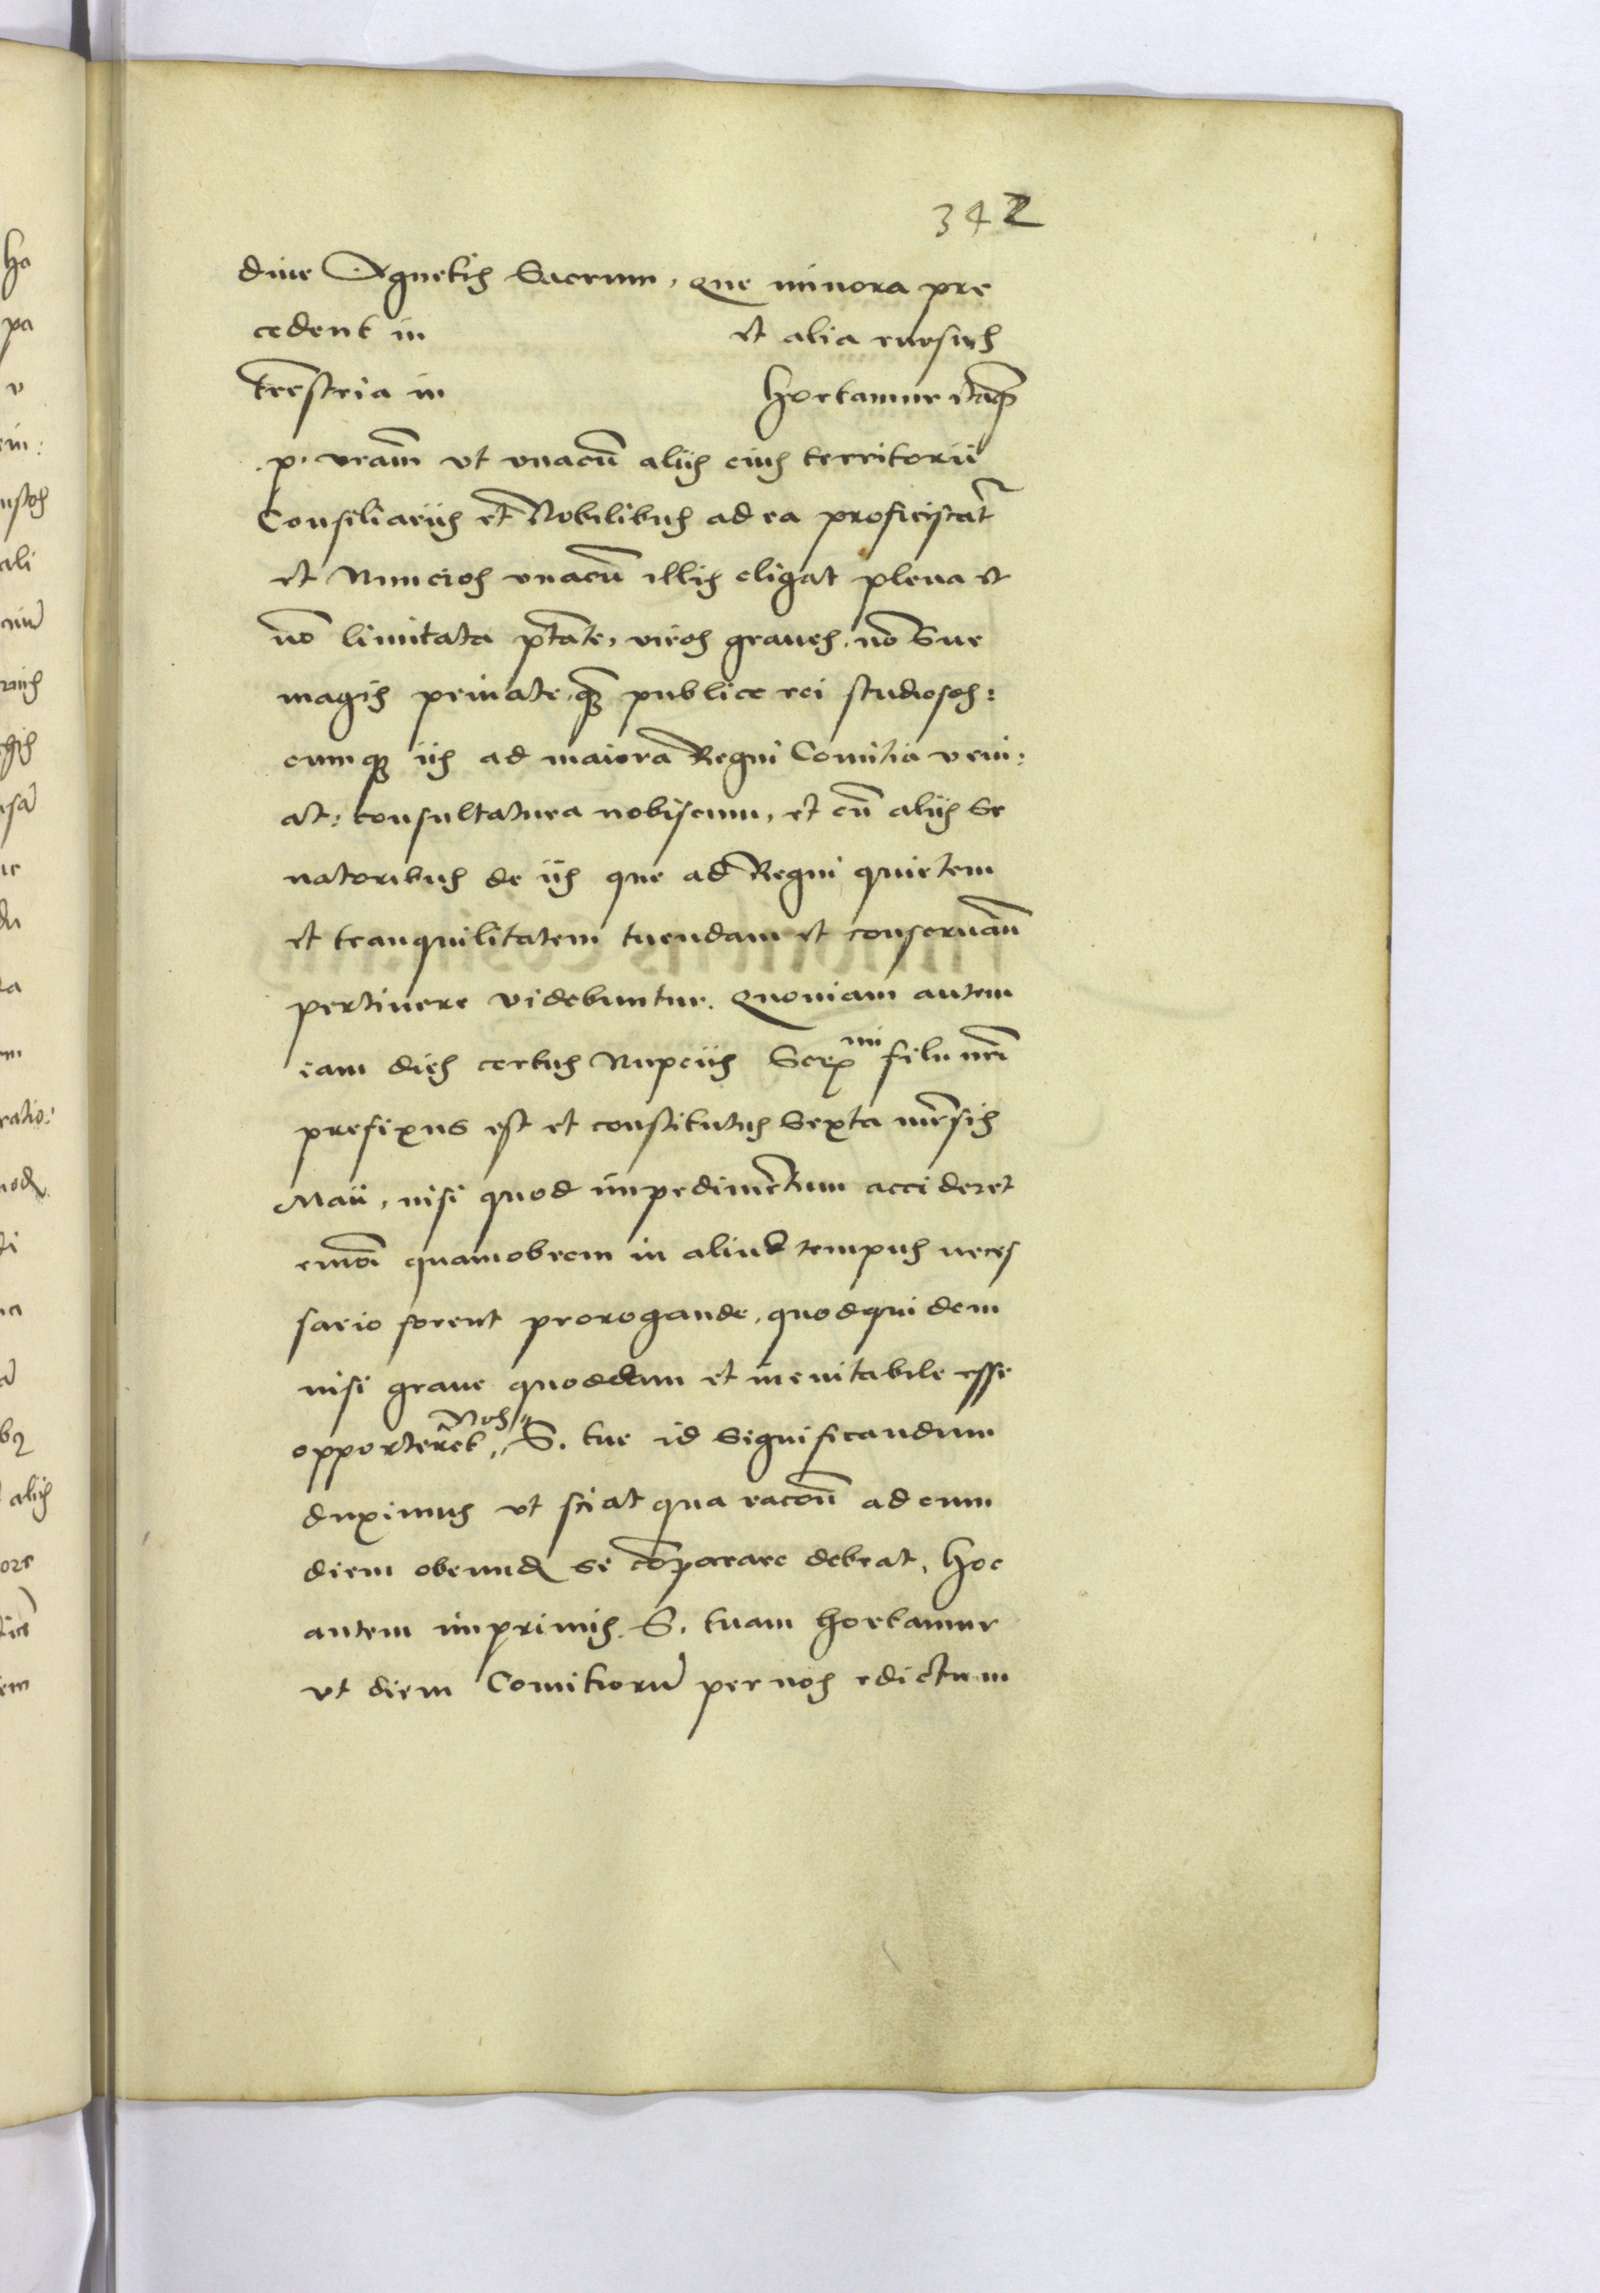 342
diue Agnetis Sacrum, que minora pre
cedent in et alia rursus
trestria in hortamur itaq
p. vram vt vnacu alijs eius territorij
Consiliarijs et Nobilibus ad ea proficiscatr
et Nuncios vnacu illis eligat plena et
no limitata ptate, viros graues, no Sue
magis priuate, q publice rei studiosos:
cumq ijs ad maiora Regni Comitia veni:
at: consultatura nobiscum, et cu alijs Se
natoribus de ijs que ad Regni quietem
et tranquilitatem tuendam et conseruan
pertinere videbuntur. Quoniam autem
iam dies certus Nupcijs Serx mi filij nri
prefixus est et constitutus Sexta mensis
Maij, nisi quod impedimentum accideret
quamobrem in aliud tempus neces
sario forent prorogande, quodquidem
nisi graue quoddam et ineuitabile esse
opporteret, Nos S. tue id significandum
duximus vt sciat qua racon ad eum
diem obeund se comparare debeat, hoc
autem imprimis S. tuam hortamur
vt diem Comitioru per nos edictum